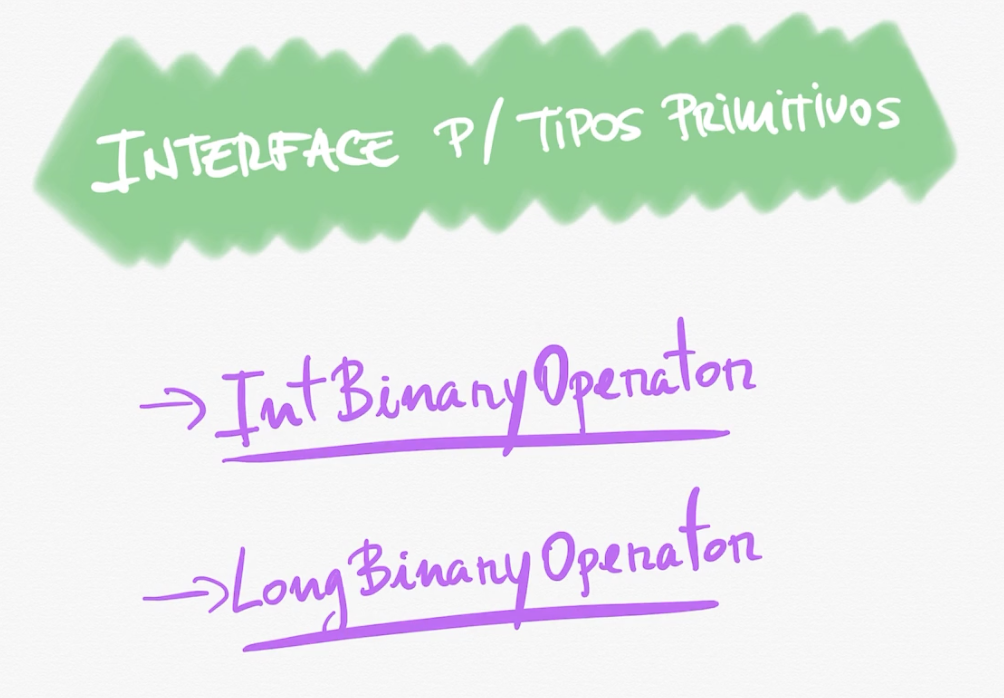 INTERFACE P/ TIPOS PRIMITIVOS
→ IntBinaryOperator
→ LongBinaryOperator